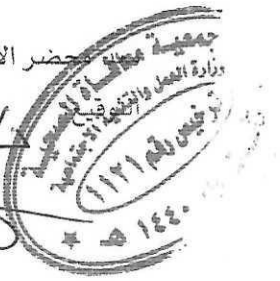 محضر الا
التوقيع
جمعية معافاة الصحية
وزارة العمل والتنمية الاجتماعية
ترخيص رقم (١١٢١)
١٤٤٠ هـ